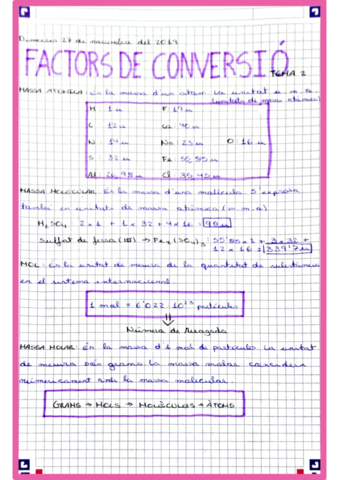 Dimecres 27 de novembre del 2019
FACTORS DE CONVERSIÓ
TEMA 2
MASSA ATÒMICA: És la massa d'un àtom. La unitat u m.a.
(unitats de massa atòmica)
H 1u F 19u
C 12u Ca 40u
N 14u Na 23u O 16u
S 32u Fe 55,85u
Al 26,98u Cl 35,45u
MASSA MOLECULAR: És la massa d'una molècula. S'expressa
també en unitats de massa atòmica (u.m.a)
H₂SO₄ 2x1 + 1x32 + 4x16 = 98u
Sulfat de ferro (III) → Fe₂(SO₄)₃: 55'85x2 + 3x32 +
12x16 = 399'7u
MOL: És la unitat de mesura de la quantitat de substància
en el sistema internacional
1 mol = 6'022 10²³ partícules
Número de Avogadro
MASSA MOLAR: És la massa d'1 mol de partícules. La unitat
de mesura són grams. La massa molar coincideix
numèricament amb la massa molecular.
GRAMS → MOLS → MOLÈCULES → ÀTOMS